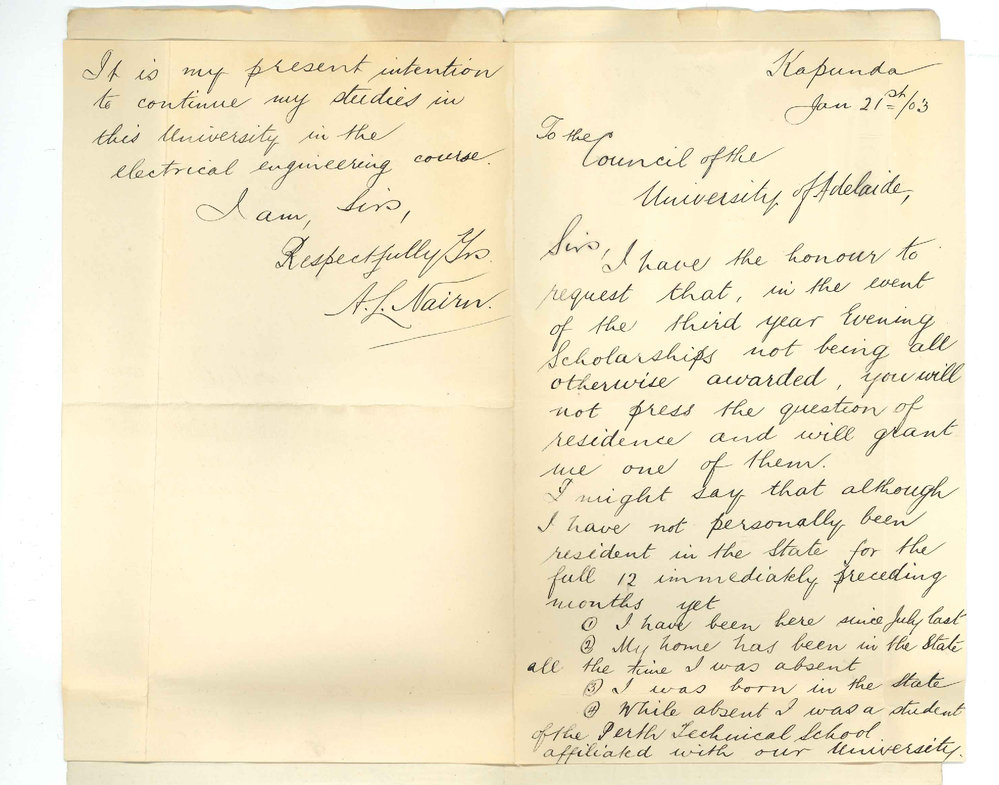 Kapunda
Jan 21st/03
To the
Council of the
University of Adelaide,
Sirs,
I have the honour to
request that, in the event
of the third year Evening
Scholarships not being all
otherwise awarded, you will
not press the question of
residence and will grant
me one of them.
I might say that although
I have not personally been
resident in the State for the
full 12 immediately preceding
months yet
① I have been here since July last
② My home has been in the State
all the time I was absent
③ I was born in the State
④ While absent I was a student
of the Perth Technical School
affiliated with our University.
It is my present intention
to continue my studies in
this University in the
electrical engineering course.
I am, Sirs,
Respectfully Yrs.
A. L. Nairn.